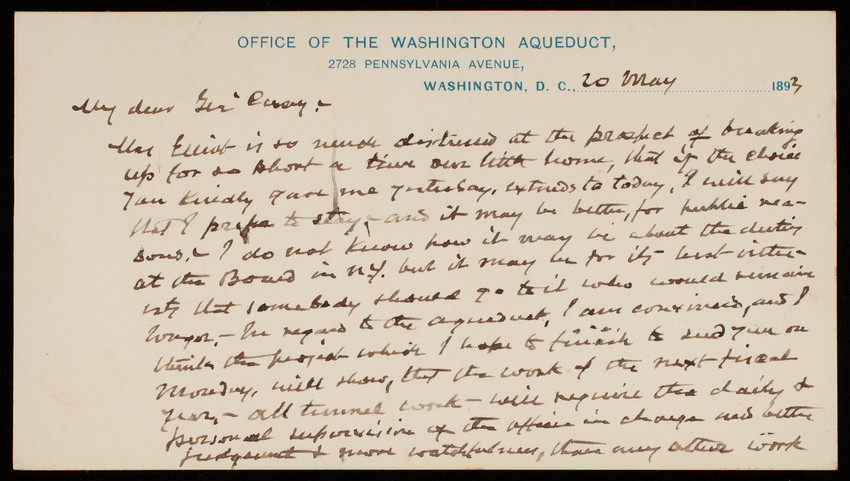 OFFICE OF THE WASHINGTON AQUEDUCT,
2728 PENNSYLVANIA AVENUE,
WASHINGTON, D. C., 20 May 1893
My dear Gen'l Casey:-
Mrs Elliot is so much distressed at the prospect of breaking
up for so short a time our little home, that if the choice
you kindly gave me yesterday, extends to today, I will say
that I prefer to stay,- and it may be better, for public rea-
sons.- I do not know how it may be about the duties
at the Board in N.Y. but it may be for its best inter-
ests that somebody should go to it who would remain
longer.- In regard to the aqueduct, I am convinced, and I
think the project which I hope to finish to send you on
Monday, will show, that the work of the next fiscal
year,- all tunnel work- will require the daily &
personal supervision of the officer in charge and better
judgement & more watchfulness, than any other work